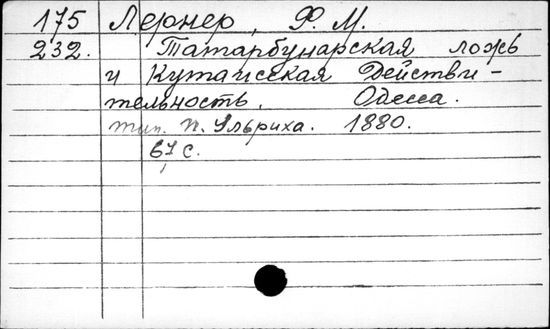 175 Лернер, Ф. М.
232. Татарбунарская ложь
и Кутаисская Действи-
тельность. Одесса.
тип. П. Ульриха. 1880.
67 с.